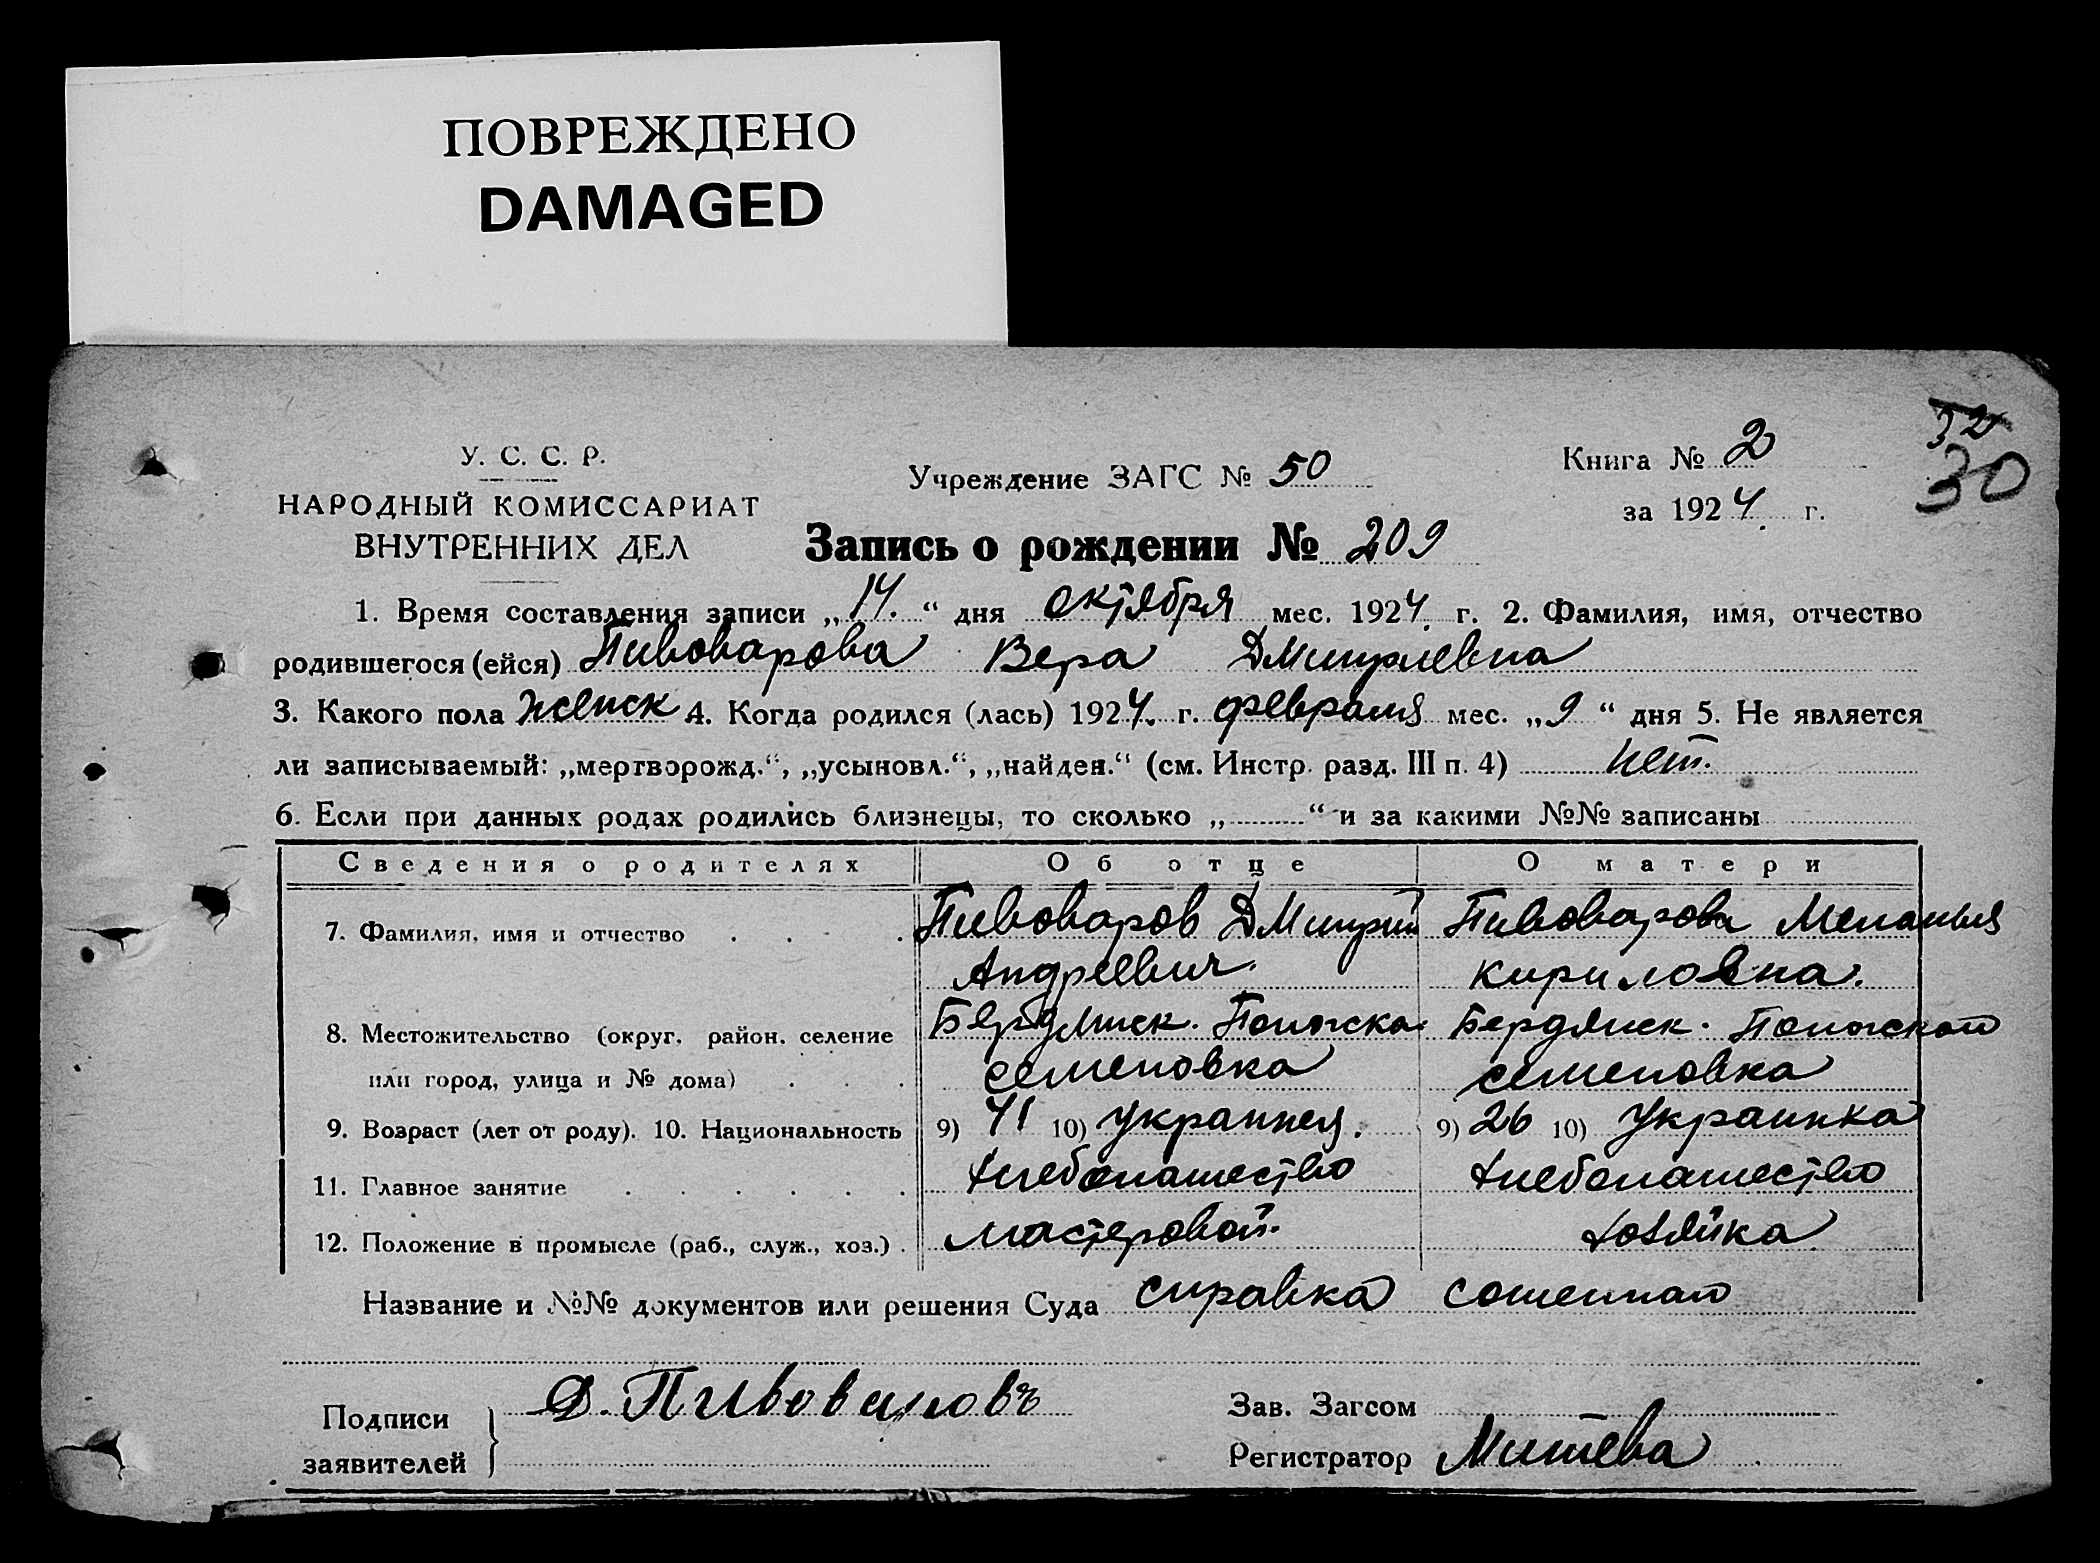 ПОВРЕЖДЕНО
DAMAGED
У. С. С. Р.
НАРОДНЫЙ КОМИССАРИАТ
ВНУТРЕННИХ ДЕЛ
Учреждение ЗАГС № 50
Книга № 2
за 1924 г.
52
30
Запись о рождении № 209
1. Время составления записи „14.“ дня октября мес. 1924. г. 2. Фамилия, имя, отчество
родившегося (ейся) Пивоварова Вера Дмитриевна
3. Какого пола женск 4. Когда родился (лась) 1924. г. февраля мес. „9“ дня 5. Не является
ли записываемый: „мертворожд.“, „усыновл.“, „найден.“ (см. Инстр. разд. III п. 4) нет.
6. Если при данных родах родились близнецы, то сколько „ “ и за какими №№ записаны
Сведения о родителях Об отце О матери
7. Фамилия, имя и отчество Пивоваров Дмитрий Пивоварова Меланья
Андреевич. Кириловна.
8. Местожительство (округ, район, селение Бердянск. Бердянск.
или город, улица и № дома) Семеновка Семеновка
9. Возраст (лет от роду). 10. Национальность 9) 41 10) Украинец. 9) 26 10) Украинка
11. Главное занятие Хлебопашество Хлебопашество
12. Положение в промысле (раб., служ., хоз.) мастеровой. хозяйка
Название и №№ документов или решения Суда справка
Подписи
заявителей
Д. Пивоваровъ
Зав. Загсом
Регистратор